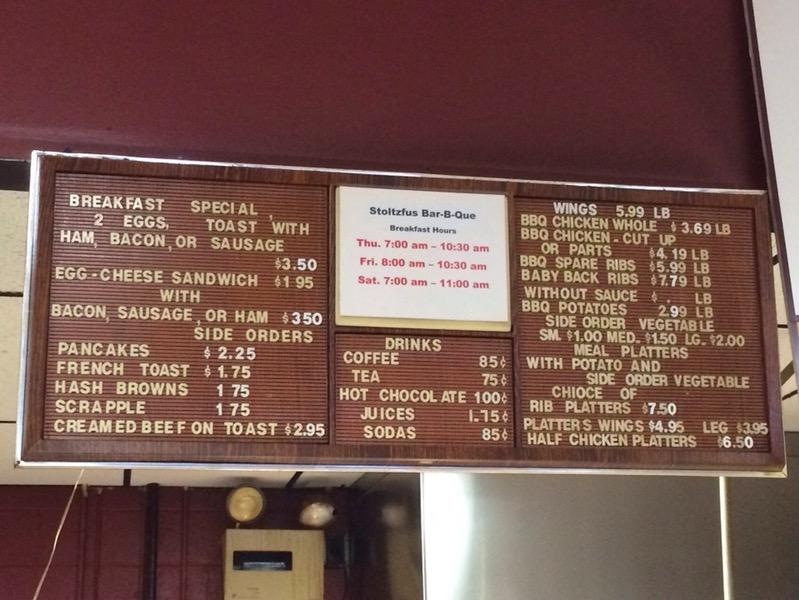 BREAKFAST SPECIAL
2 EGGS, TOAST WITH
HAM, BACON, OR SAUSAGE
$3.50
EGG-CHEESE SANDWICH $1 95
WITH
BACON, SAUSAGE, OR HAM $350
SIDE ORDERS
PANCAKES $2.25
FRENCH TOAST $1.75
HASH BROWNS 1 75
SCRAPPLE 1 75
CREAMED BEEF ON TOAST $2.95
Stoltzfus Bar-B-Que
Breakfast Hours
Thu. 7:00 am – 10:30 am
Fri. 8:00 am – 10:30 am
Sat. 7:00 am – 11:00 am
DRINKS
COFFEE 85¢
TEA 75¢
HOT CHOCOLATE 100¢
JUICES 1.75¢
SODAS 85¢
WINGS 5.99 LB
BBQ CHICKEN WHOLE $3.69 LB
BBQ CHICKEN-CUT UP
OR PARTS $4.19 LB
BBQ SPARE RIBS $5.99 LB
BABY BACK RIBS $7.79 LB
WITHOUT SAUCE $ . LB
BBQ POTATOES 2.99 LB
SIDE ORDER VEGETABLE
SM. $1.00 MED. $1.50 LG. $2.00
MEAL PLATTERS
WITH POTATO AND
SIDE ORDER VEGETABLE
CHIOCE OF
RIB PLATTERS $7.50
PLATTERS WINGS $4.95 LEG $3.95
HALF CHICKEN PLATTERS $6.50